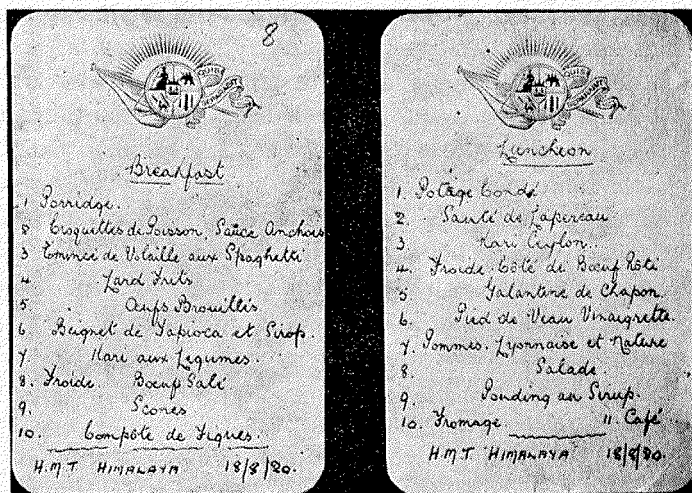 8
Breakfast
1 Porridge.
2 Croquettes de Poisson, Sauce Anchois
3 Emincé de Volaille aux Spaghetti
4 Lard Frits
5. Oeufs Brouillis
6 Beignet de Tapioca et Sirop.
7. Kari aux Legumes.
8. Froide. Boeuf Salé
9. Scones
10. Compôte de Figues.
H.M.T HIMALAYA 18/8/20.
QUIS SEPARABIT
Luncheon
1. Potage Condé
2. Sauté de Lapereau
3 Kari Ceylon.
4. Froide. Côté de Boeuf Rôti
5 Galantine de Chapon.
6. Pied de Veau Vinaigrette.
7. Pommes. Lyonnaise et Nature
8 Salade.
9. Pouding au Sirup.
10. Fromage 11. Café
H.M.T HIMALAYA 18/8/20.